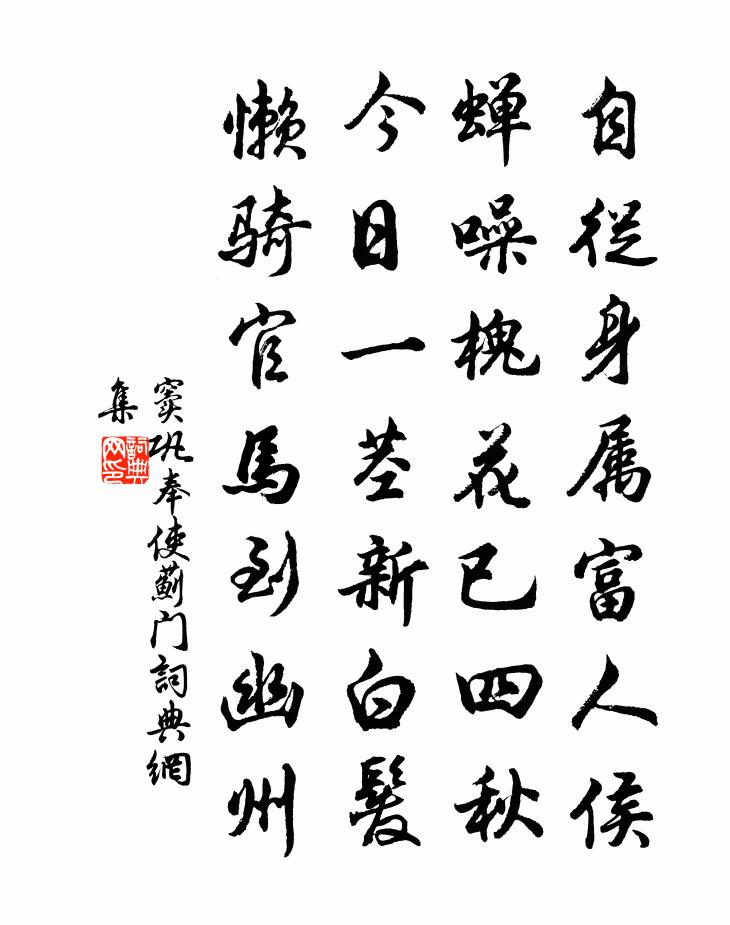 自從身属富人侯
蝉噪槐花已四秋
今日一茎新白髮
懒骑官馬到幽州
窦巩奉使蓟门詞典網
集
詞典
网印